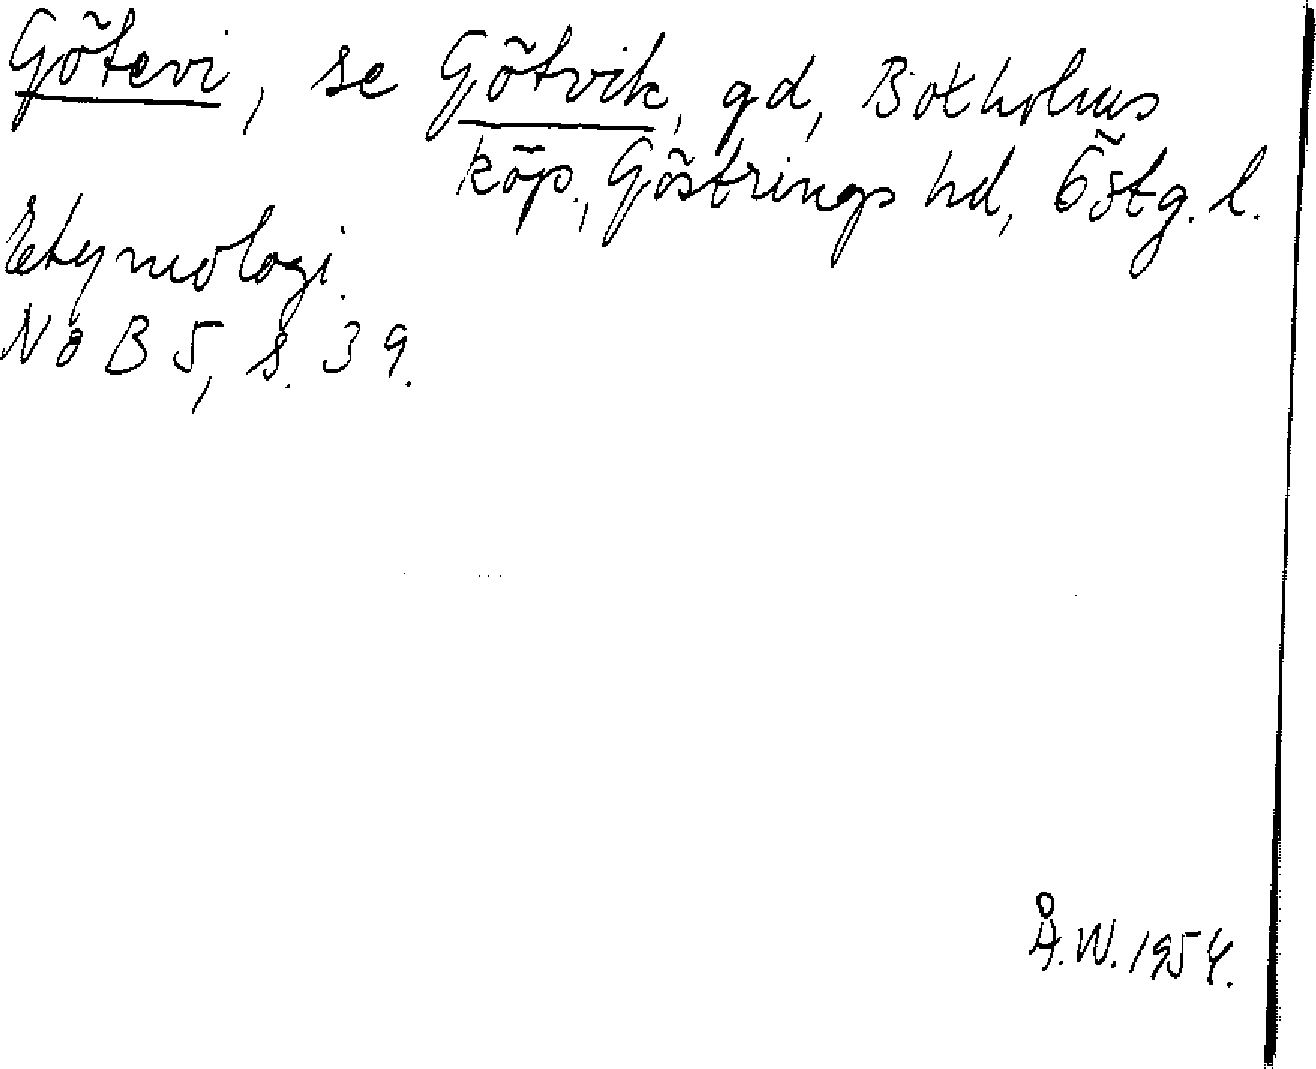 Götevi, se Götvik, gd, Botholms
köp., Göstrings hd, Östg. l.
Etymologi.
NoB 5, s. 39.
Å.W. 1954.